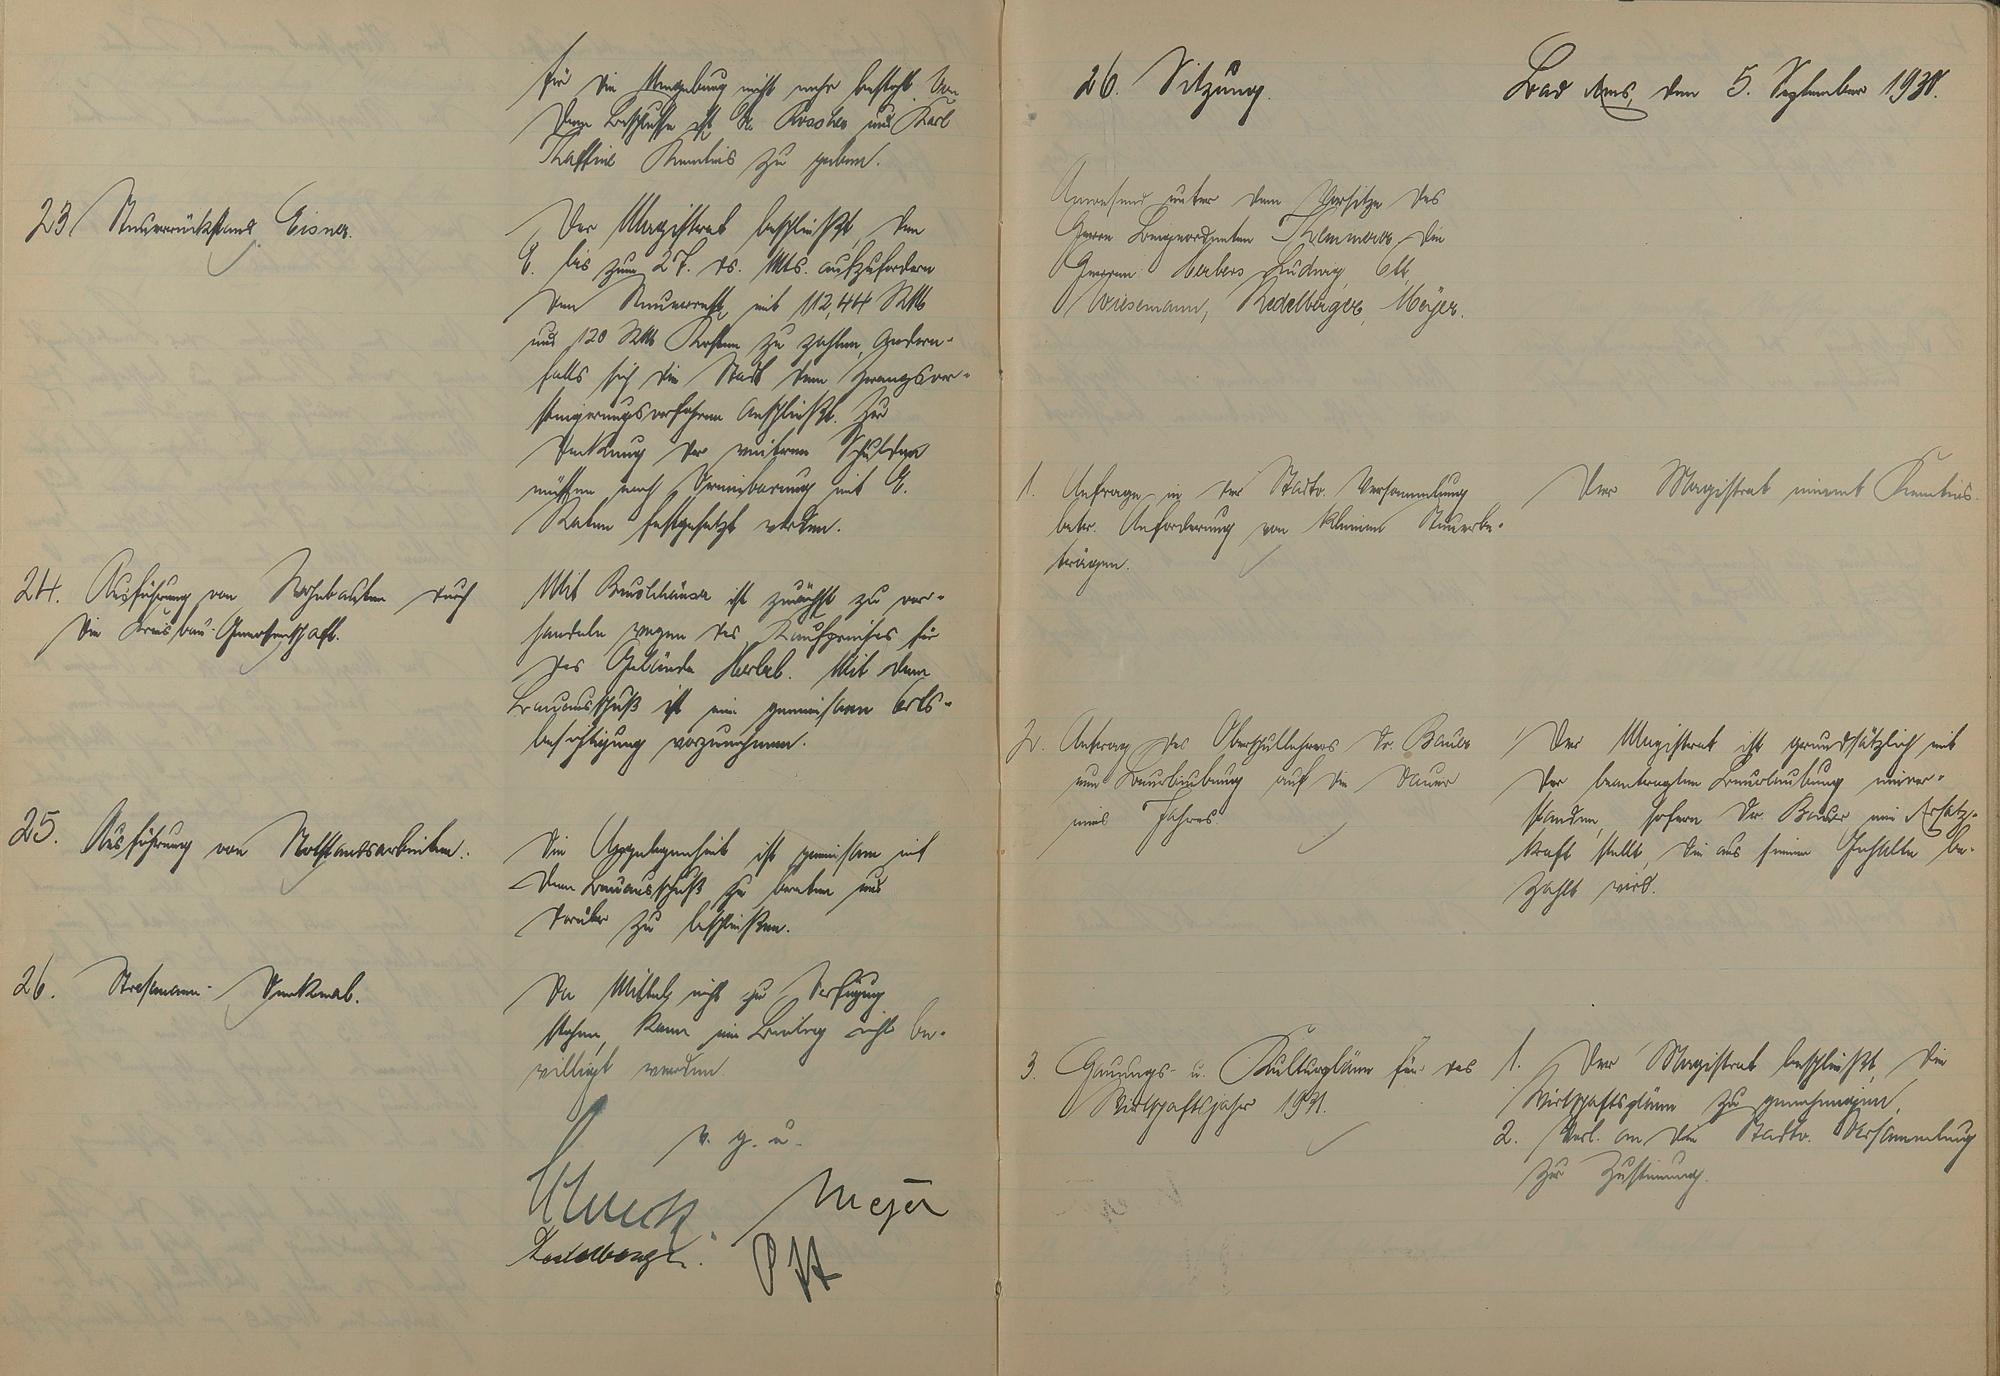 für die Umgebung nicht mehr besteht. Von
dem Beschlusse ist Dr. Roscher und Karl
Kenntnis zu geben.
23 Steuerrückstand Eisner.
Der Magistrat beschließt, den
E. bis zum 27. ds. Mts. aufzufordern
den Steuerrest mit 112,44 RM
und 120 RM Kosten zu zahlen, andern-
falls sich die Stadt dem Zwangsver-
steigerungsverfahren anschließt. Zur
Deckung der weiteren Schulden
müssen nach Vereinbarung mit E.
Raten festgesetzt werden.
24. Ausführung von Wohnbauten durch
die Kreisbau-Genossenschaft.
Mit ist zunächst zu ver-
handeln wegen des Kaufpreises für
das Gelände Herbel. Mit dem
Bauausschuß ist eine gemeinsame Orts-
besichtigung vorzunehmen.
25. Ausführung von Notstandsarbeiten.
Die Angelegenheit ist gemeinsam mit
dem Bauausschuß zu beraten und
darüber zu beschließen.
26. Stresemann-Denkmal.
Da Mittel nicht zu Verfügung
stehen, kann ein Beitrag nicht be-
willigt werden.
v. g. u.
Meyer
Redelberger.
Ott
26. Sitzung.
Bad Ems, den 5. September 1930.
Anwesend unter dem Vorsitze des
Herrn Beigeordneten die
Herren: Herbers, Ludwig, Ott,
Wiesemann, Redelberger, Meyer.
1. Anfrage in der Stadtv. Versammlung
betr. Anforderung von kleinen Steuerbe-
trägen.
Der Magistrat nimmt Kenntnis.
2. Antrag des Oberschullehrers Dr. Bauer
um Beurlaubung auf die Dauer
eines Jahres.
Der Magistrat ist grundsätzlich mit
der beantragten Beurlaubung einver-
standen, sofern Dr. Bauer eine Ersatz-
kraft stellt, die aus seinem Gehalte be-
zahlt wird.
3. Hauungs- u. Kulturpläne für das
Wirtschaftsjahr 1931.
1. Der Magistrat beschließt, die
Wirtschaftspläne zu genehmigen.
2. Verl. an die Stadtv. Versammlung
zur Zustimmung.